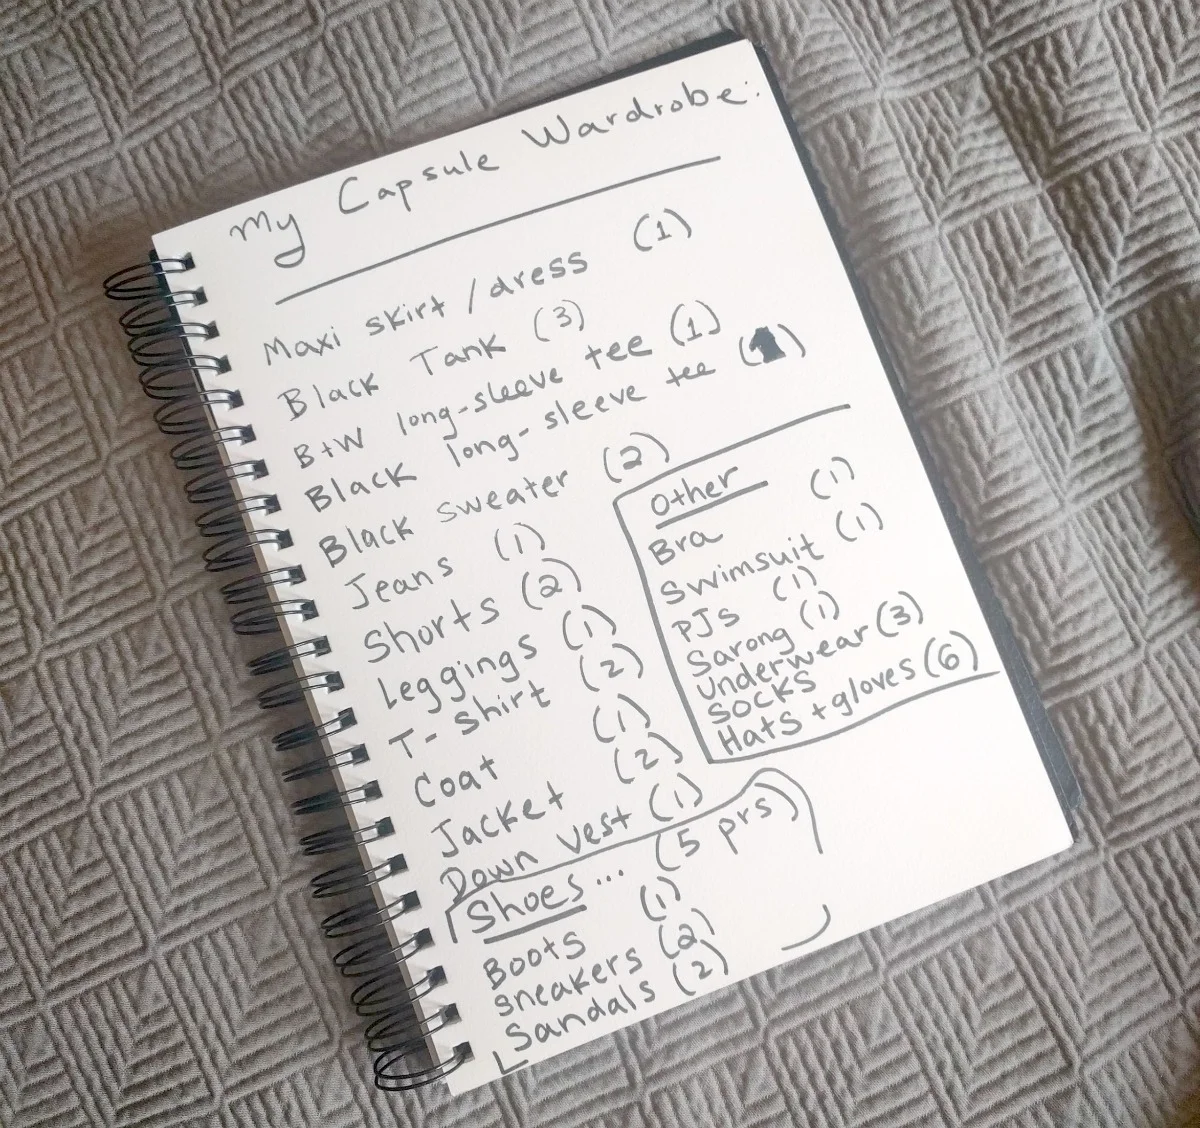 My Capsule Wardrobe:
Maxi skirt / dress (1)
Black Tank (3)
B+W long-sleeve tee (1)
Black long-sleeve tee (1)
Black sweater (2)
Jeans (1)
Shorts (2)
Leggings (1)
T-Shirt (2)
Coat (1)
Jacket (2)
Down vest (1)
Other
Bra (1)
Swimsuit (1)
PJs (1)
Sarong (1)
Underwear (3)
Socks
Hats + gloves (6)
Shoes... (5 prs)
Boots (1)
Sneakers (2)
Sandals (2)